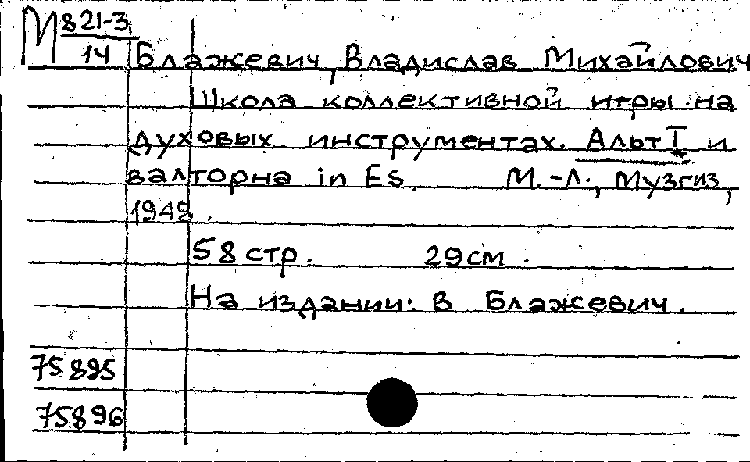 М 821-3
14
Блажевич, Владислав Михайлович
Школа коллективной игры на
духовых инструментах. Альт I и
валторна in Es. М.-Л., Музгиз,
1949.
58 стр. 29 см.
На издании: В Блажевич.
75895
75896